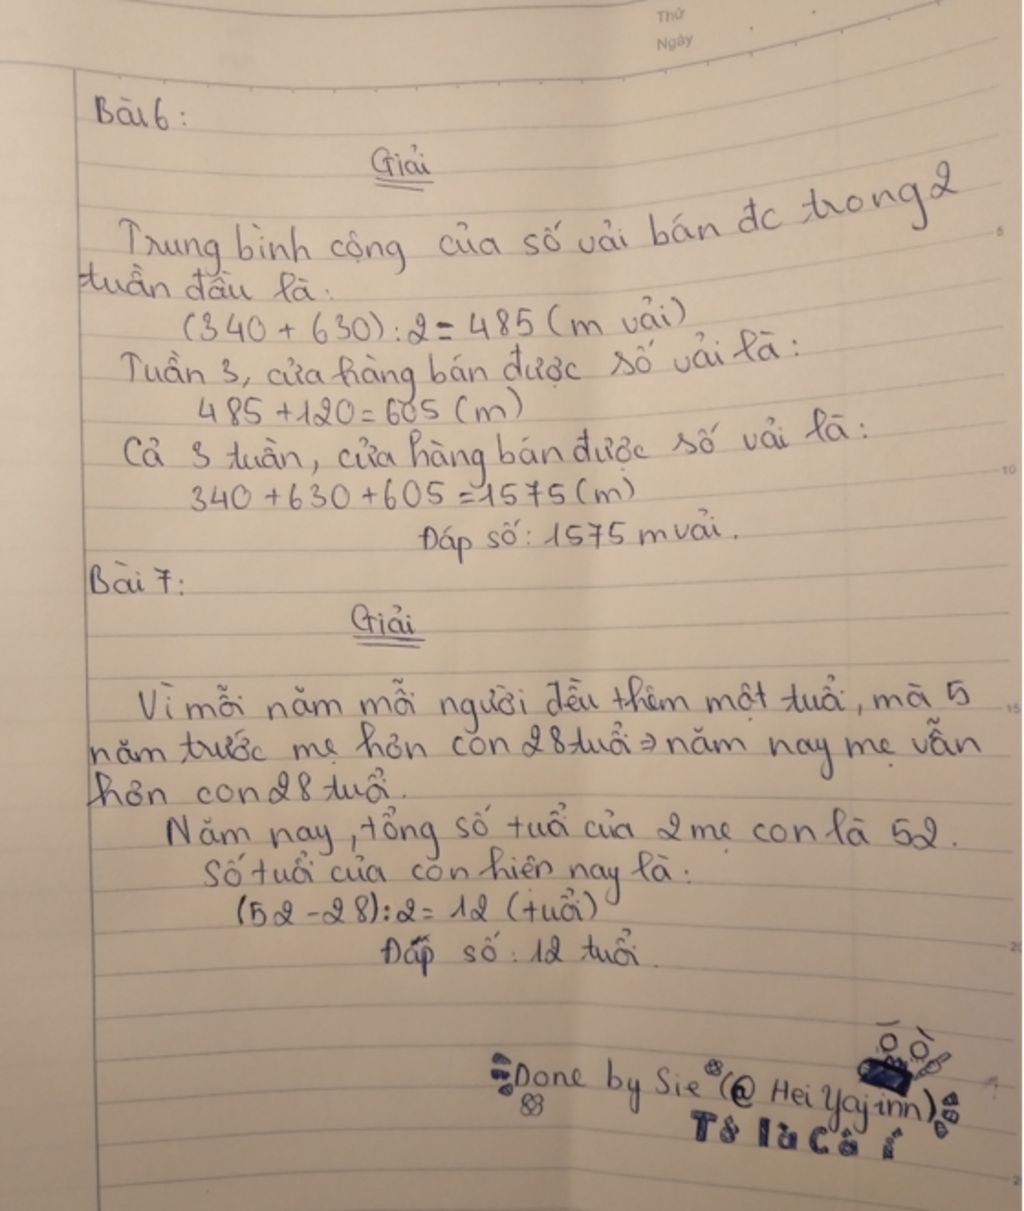 Thứ
Ngày
Bài 6:
Giải
Trung bình cộng của số vải bán đc trong 2
tuần đầu là:
(340 + 630) : 2 = 485 (m vải)
Tuần 3, cửa hàng bán được số vải là:
485 + 120 = 605 (m)
Cả 3 tuần, cửa hàng bán được số vải là:
340 + 630 + 605 = 1575 (m)
Đáp số: 1575 m vải.
Bài 7:
Giải
Vì mỗi năm mỗi người đều thêm một tuổi, mà 5
năm trước mẹ hơn con 28 tuổi ⇒ năm nay mẹ vẫn
hơn con 28 tuổi.
Năm nay, tổng số tuổi của 2 mẹ con là 52.
Số tuổi của con hiện nay là:
(52 - 28) : 2 = 12 (tuổi)
Đáp số: 12 tuổi.
Done by Sie (@ Hei Yajinn)
5
10
15
20